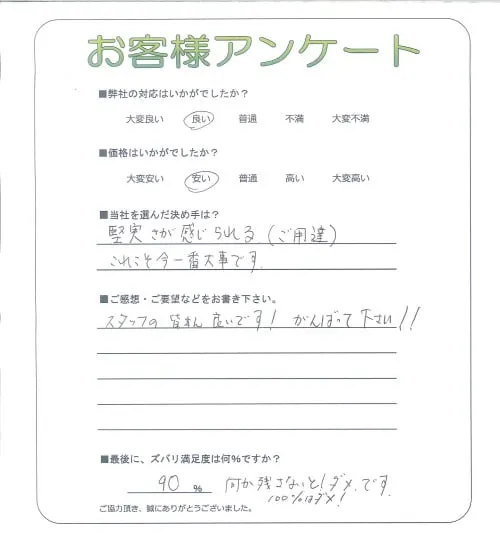 お客様アンケート
■弊社の対応はいかがでしたか？
大変良い 良い 普通 不満 大変不満
■価格はいかがでしたか？
大変安い 安い 普通 高い 大変高い
■当社を選んだ決め手は？
堅実さが感じられる。(ご用達)
これこそ今一番大事です。
■ご感想・ご要望などをお書き下さい。
スタッフの皆さん良いです！ がんばって下さい!!
■最後に、ズバリ満足度は何%ですか？
90 % 何か残さないと！ダメです。
100%はダメ！
ご協力頂き、誠にありがとうございました。